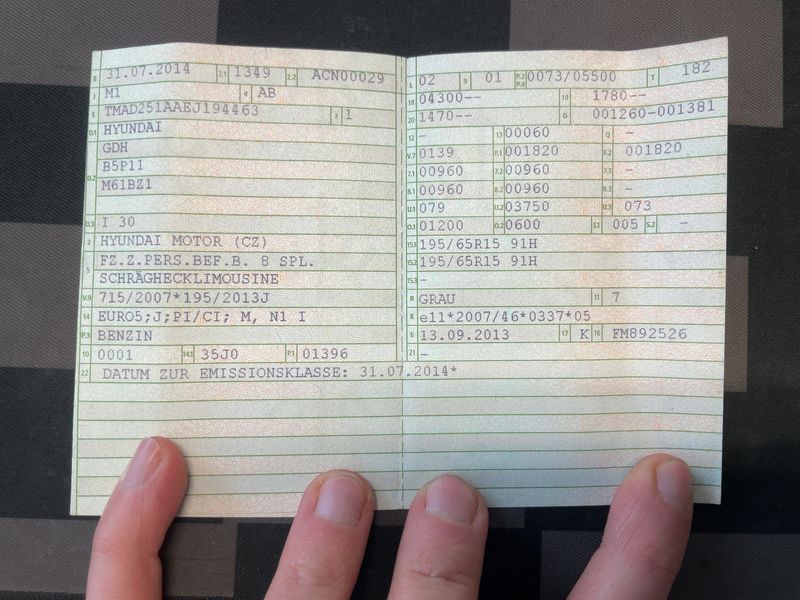 B 31.07.2014 2.1 1349 2.2 ACN00029
J M1 4 AB
E TMAD251AAEJ194463 3 1
D.1 HYUNDAI
D.2 GDH
B5P11
M61BZ1
D.3 I 30
2 HYUNDAI MOTOR (CZ)
5 FZ.Z.PERS.BEF.B. 8 SPL.
SCHRÄGHECKLIMOUSINE
V.9 715/2007*195/2013J
14 EURO5;J;PI/CI; M, N1 I
P.3 BENZIN
10 0001 14.1 35J0 P.1 01396
22 DATUM ZUR EMISSIONSKLASSE: 31.07.2014*
L 02 9 01 P.2 P.4 0073/05500 T 182
18 04300-- 19 1780--
20 1470-- G 001260-001381
12 - 13 00060 Q -
V.7 0139 F.1 001820 F.2 001820
7.1 00960 7.2 00960 7.3 -
8.1 00960 8.2 00960 8.3 -
U.1 079 U.2 03750 U.3 073
O.1 01200 O.2 0600 S.1 005 S.2 -
15.1 195/65R15 91H
15.2 195/65R15 91H
15.3 -
R GRAU 11 7
K e11*2007/46*0337*05
6 13.09.2013 17 K 16 FM892526
21 -